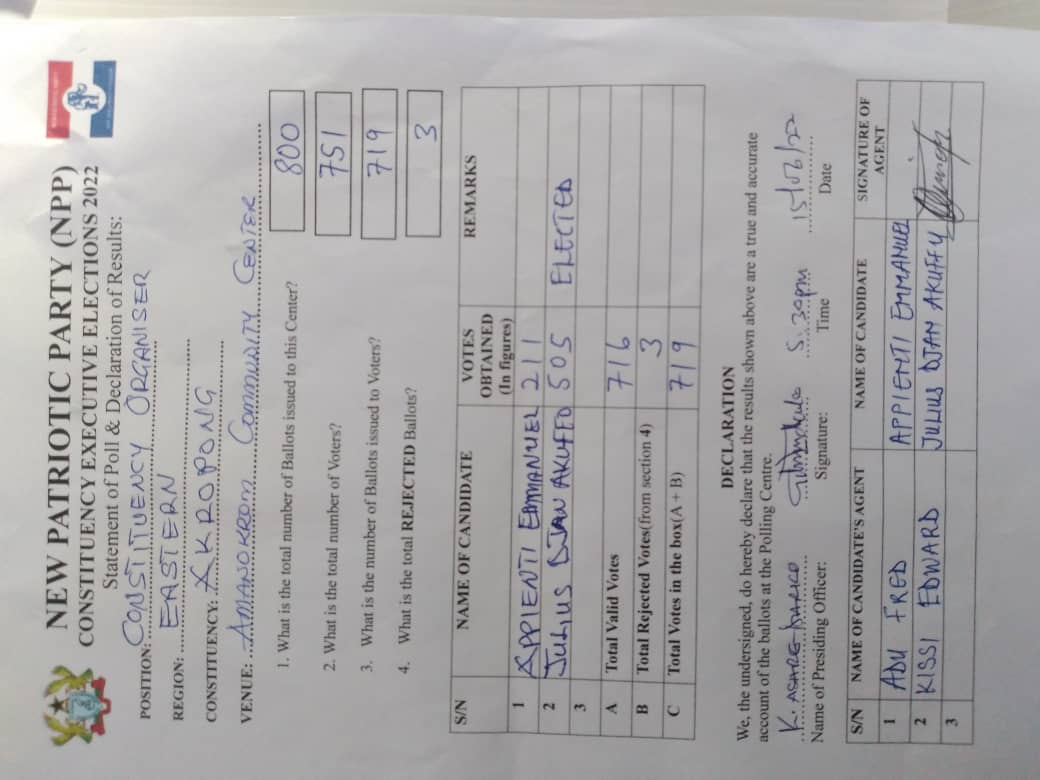 NEW PATRIOTIC PARTY (NPP)
CONSTITUENCY EXECUTIVE ELECTIONS 2022
Statement of Poll & Declaration of Results:
POSITION: CONSTITUENCY ORGANISER
REGION: EASTERN
CONSTITUENCY: AKROPONG
VENUE: AMANOKROM COMMUNITY CENTER
1. What is the total number of Ballots issued to this Center? 800
2. What is the total number of Voters? 751
3. What is the number of Ballots issued to Voters? 719
4. What is the total REJECTED Ballots? 3
S/N NAME OF CANDIDATE VOTES OBTAINED (In figures) REMARKS
1 APPIENTI EMMANUEL 211
2 JULIUS DJAN AKUFFO 505 ELECTED
3
A Total Valid Votes 716
B Total Rejected Votes(from section 4) 3
C Total Votes in the box(A + B) 719
DECLARATION
We, the undersigned, do hereby declare that the results shown above are a true and accurate
account of the ballots at the Polling Centre.
K. ASARE-DARKO 5:30pm 15/05/22
Name of Presiding Officer: Signature: Time Date
S/N NAME OF CANDIDATE'S AGENT NAME OF CANDIDATE SIGNATURE OF AGENT
1 ADU FRED APPIENTI EMMANUEL
2 KISSI EDWARD JULIUS DJAN AKUFFY
3